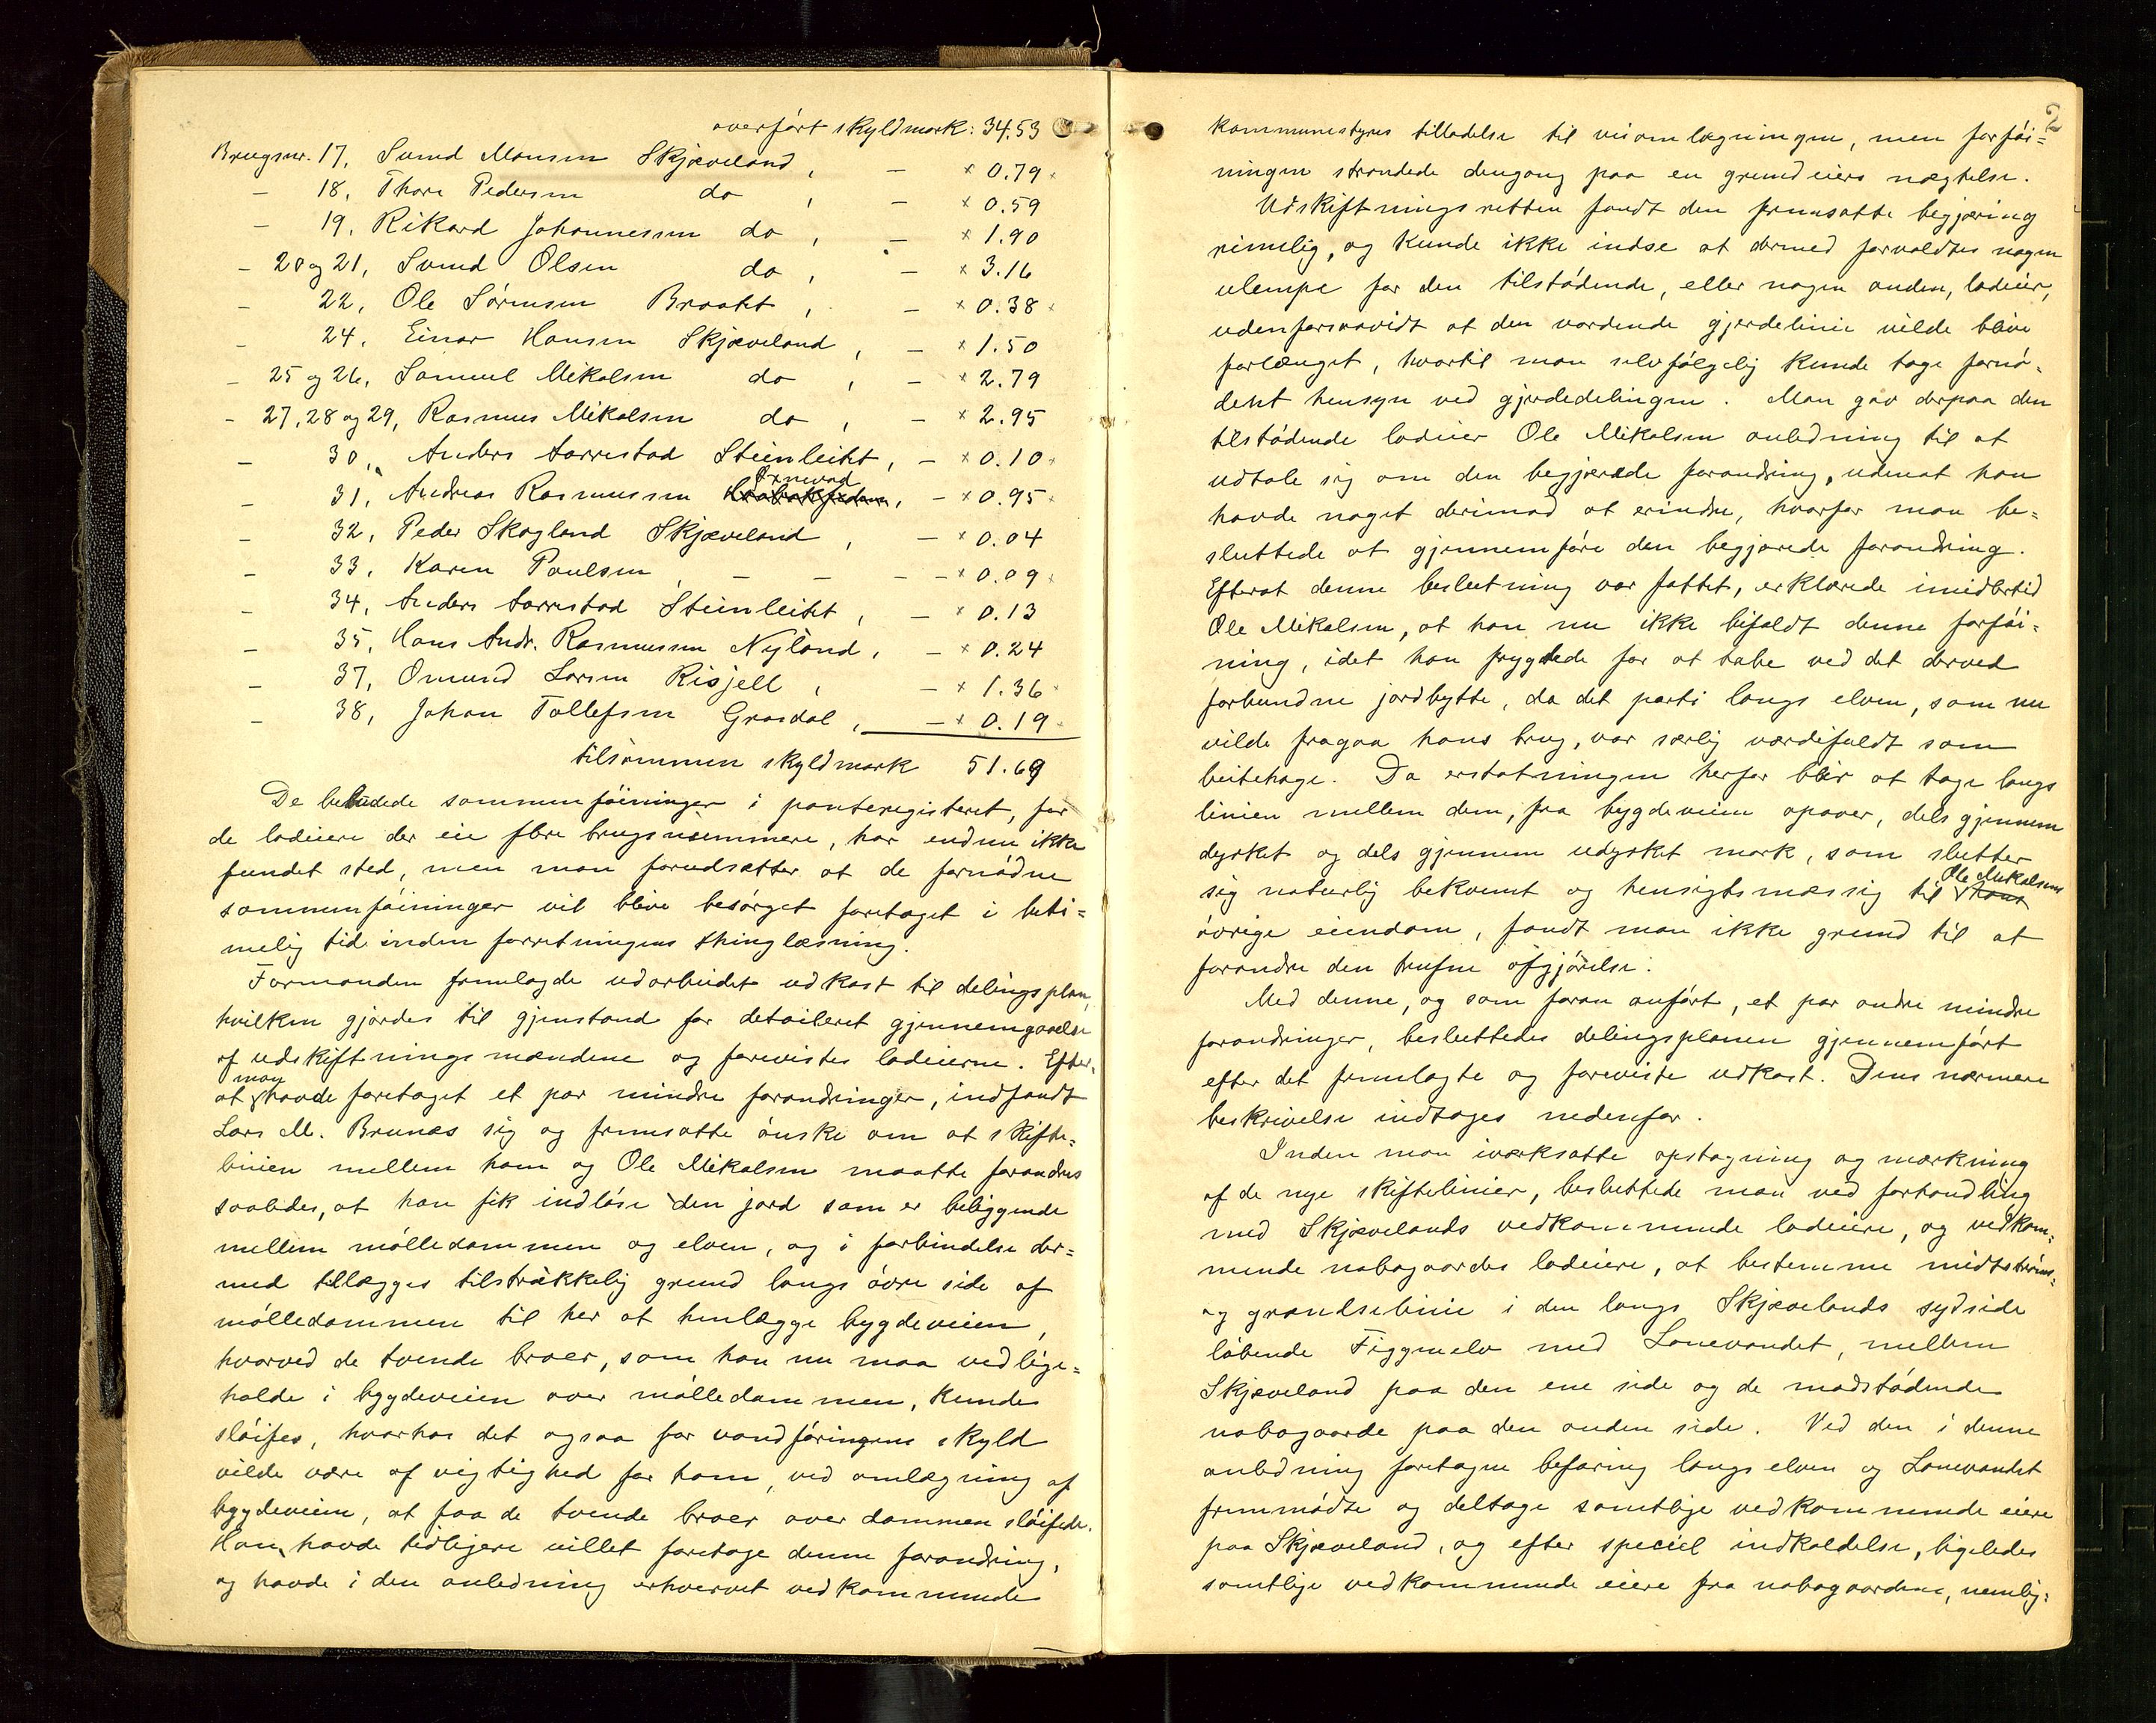 overført skyldmark: 34.53
Brugsnr. 17, Svend Monsen Skjæveland, — × 0.79
— 18, Thore Pedersen do, — × 0.59
— 19, Rikard Johannessen do, — × 1.90
— 20 og 21, Svend Olsen do, — × 3.16
— 22, Ole Sørensen Braakt, — × 0.38
— 24, Einar Hansen Skjæveland, — × 1.50
— 25 og 26, Samuel Mikalsen do, — × 2.79
— 27, 28 og 29, Rasmus Mikalsen do, — × 2.95
— 30, Anders Aarrestad Steinleitet, — × 0.10
— 31, Andreas Rasmussen, — × 0.95
— 32, Peder Skogland Skjæveland, — × 0.04
— 33, Karen Poulsen, — — — × 0.09
— 34, Anders Aarrestad Steinleitet, — × 0.13
— 35, Hans Andr. Rasmussen Nyland, — × 0.24
— 37, Omund Larsen Risjell, — × 1.36
— 38, Johan Tollefsen Grasdal, — × 0.19
tilsammen skyldmark 51.69
De bebudede sammenføininger i panteregisteret, for
de lodeiere der eie flere brugsnummere, har endnu ikke
fundet sted, men man forudsætter at de fornødne
sammenføininger vil blive besørget foretaget i beti=
melig tid inden forretningens thinglæsning.
Formanden fremlagde udarbeidet udkast til delingsplan,
hvilken gjordes til gjenstand for detaileret gjennemgaaelse
af udskiftningsmændene og forevistes lodeierne. Efter,
at man havde foretaget et par mindre forandringer, indfandt
Lars M. Brunæs sig og fremsatte ønske om at skifte=
linien mellem ham og Ole Mikalsen maatte forandres
saaledes, at han fik indløse den jord som er beliggende
mellem mølledammen og elven, og i forbindelse der=
med tillægges tilstrækkelig grund langs øvre side af
mølledammen til her at henlægge bygdeveien,
hvorved de tvende broer, som han nu maa vedlige=
holde i bygdeveien over mølledammen, kunde
sløifes, hvorhos det ogsaa for vandføringens skyld
vilde være af vigtighed for ham, ved omlægning af
bygdeveien, at faa de tvende broer over dammen sløifede.
Han havde tidligere villet foretage denne forandring,
og havde i den anledning erhvervet vedkommende
2
kommunestyres tilladelse til veiomlægningen, men forføi=
ningen strandede dengang paa en grundeiers nægtelse.
Udskiftningsretten fandt den fremsatte begjæring
rimelig, og kunde ikke indse at dermed forvoldtes nogen
ulempe for den tilstødende, eller nogen anden, lodeier,
udenforsaavidt at den vordende gjerdelinie vilde blive
forlænget, hvortil man selvfølgelig kunde tage fornø=
dent hensyn ved gjerdedelingen. Man gav derpaa den
tilstødende lodeier Ole Mikalsen anledning til at
udtale sig om den begjærede forandring, udenat han
havde noget derimod at erindre, hvorfor man be=
sluttede at gjennemføre den begjærede forandring.
Efterat denne beslutning var fattet, erklærede imidlertid
Ole Mikalsen, at han nu ikke bifaldt denne forføi=
ning, idet han frygtede for at tabe ved det derved
forbundne jordbytte, da det parti langs elven, som nu
vilde fragaa hans brug, var særlig værdifuldt som
beitehage. Da erstatningen herfor blir at tage langs
linien mellem dem, fra bygdeveien opover, dels gjennem
dyrket og dels gjennem udyrket mark, som slutter
sig naturlig bekvemt og hensigtsmæssig til Ole Mikalsens hans
øvrige eiendom, fandt man ikke grund til at
forandre den trufne afgjørelse.
Med denne, og som foran anført, et par andre mindre
forandringer, besluttedes delingsplanen gjennemført
efter det fremlagte og foreviste udkast. Dens nærmere
beskrivelse indtages nedenfor.
Inden man iværksatte opstagning og mærkning
af de nye skiftelinier, besluttede man ved forhandling
med Skjævelands vedkommende lodeiere, og vedkom=
mende nabogaardes lodeiere, at bestemme midtstrøms=
og grændselinie i den langs Skjævelands sydside
løbende Figgenelv med Lonevandet, mellem
Skjæveland paa den ene side og de modstødende
nabogaarde paa den anden side. Ved den i denne
anledning foretagne befaring langs elven og Lonevandet
fremmødte og deltoge samtlige vedkommende eiere
paa Skjæveland, og efter speciel indkaldelse, ligeledes
samtlige vedkommende eiere fra nabogaardene, nemlig: